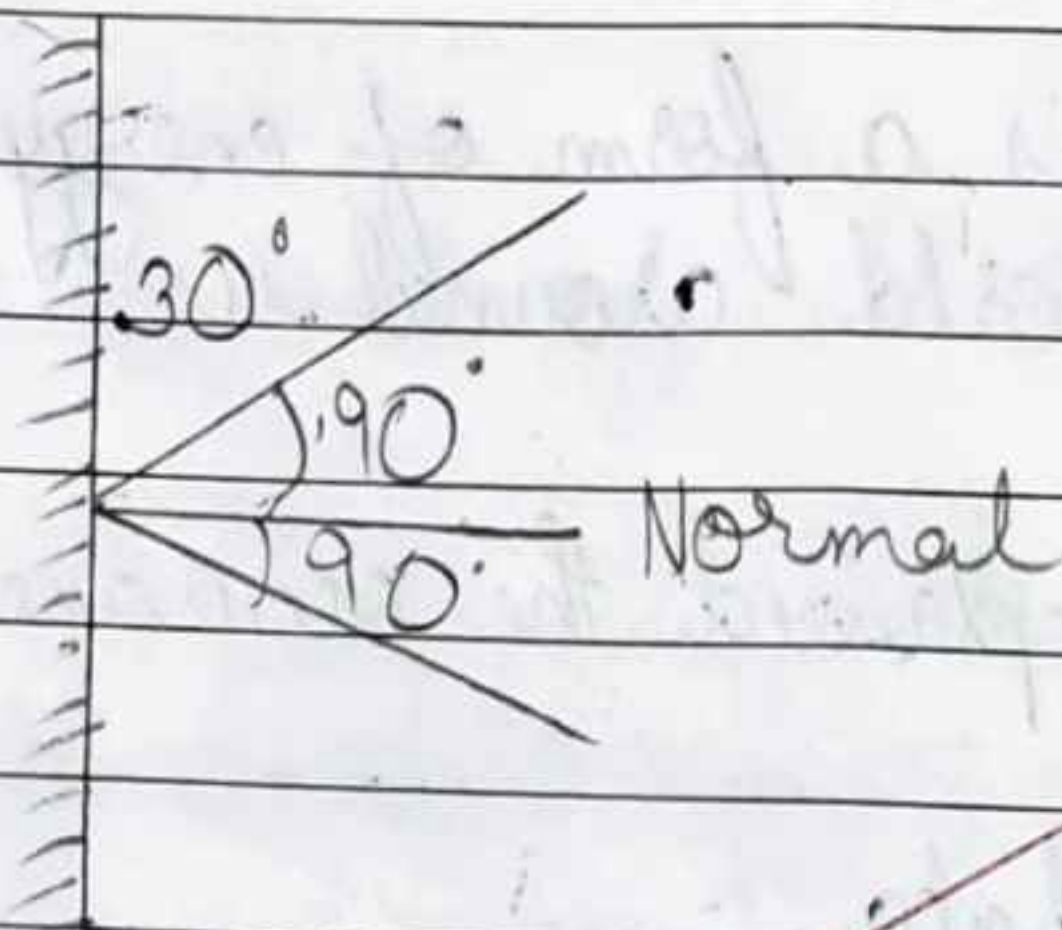 30°
90°
90° Normal